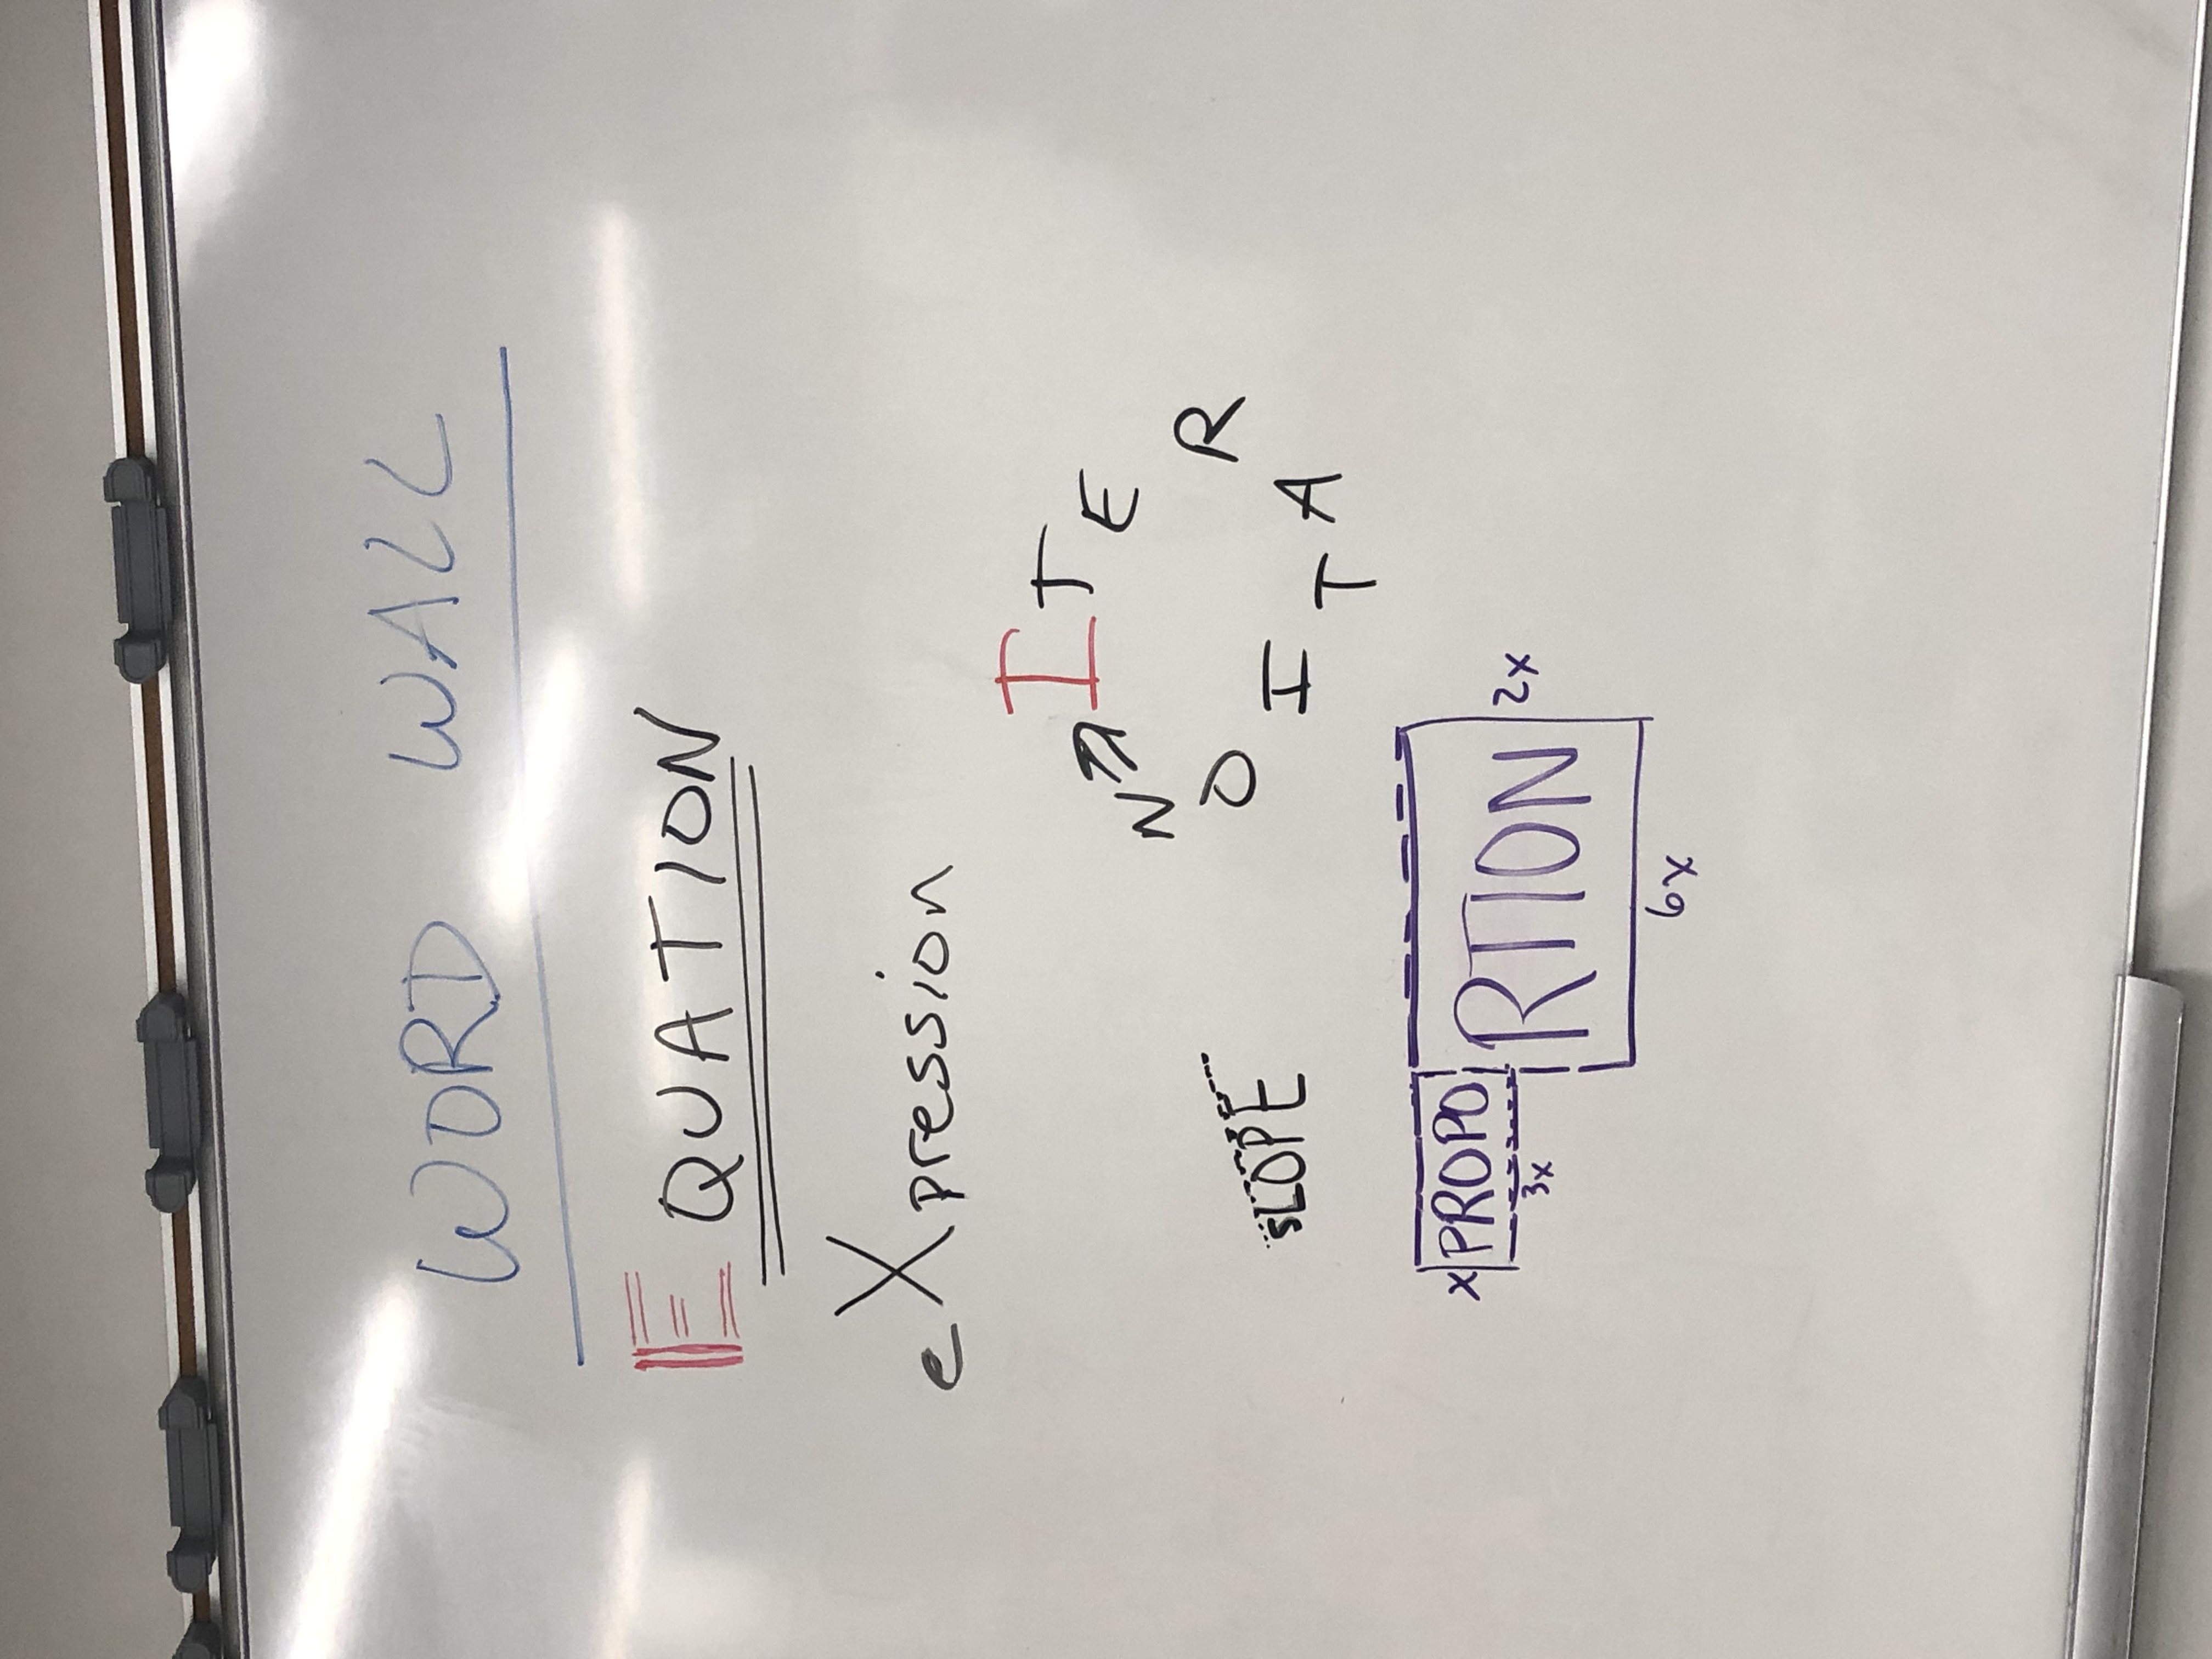 WORD WALL
EQUATION
eXpression
ITERATION
SLOPE
x PROPO RTION 2x
3x
6x